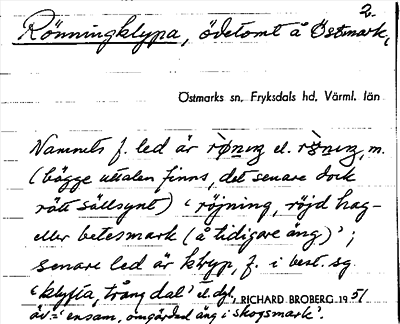 2.
Rönningklypa, ödetomt å Östmark,
Östmarks sn. Fryksdals hd. Värml. län
Namnets f. led är el. m.
(bägge uttalen finns, det senare dock
rätt sällsynt) ‘röjning, röjd hag-
eller betesmark (å tidigare äng)’;
senare led är klyp, f. i best. sg.
‘klyfta, trång dal’ el. dyl.,
RICHARD BROBERG 1951
äv. = ‘ensam, omgärdad äng i skogsmark’.